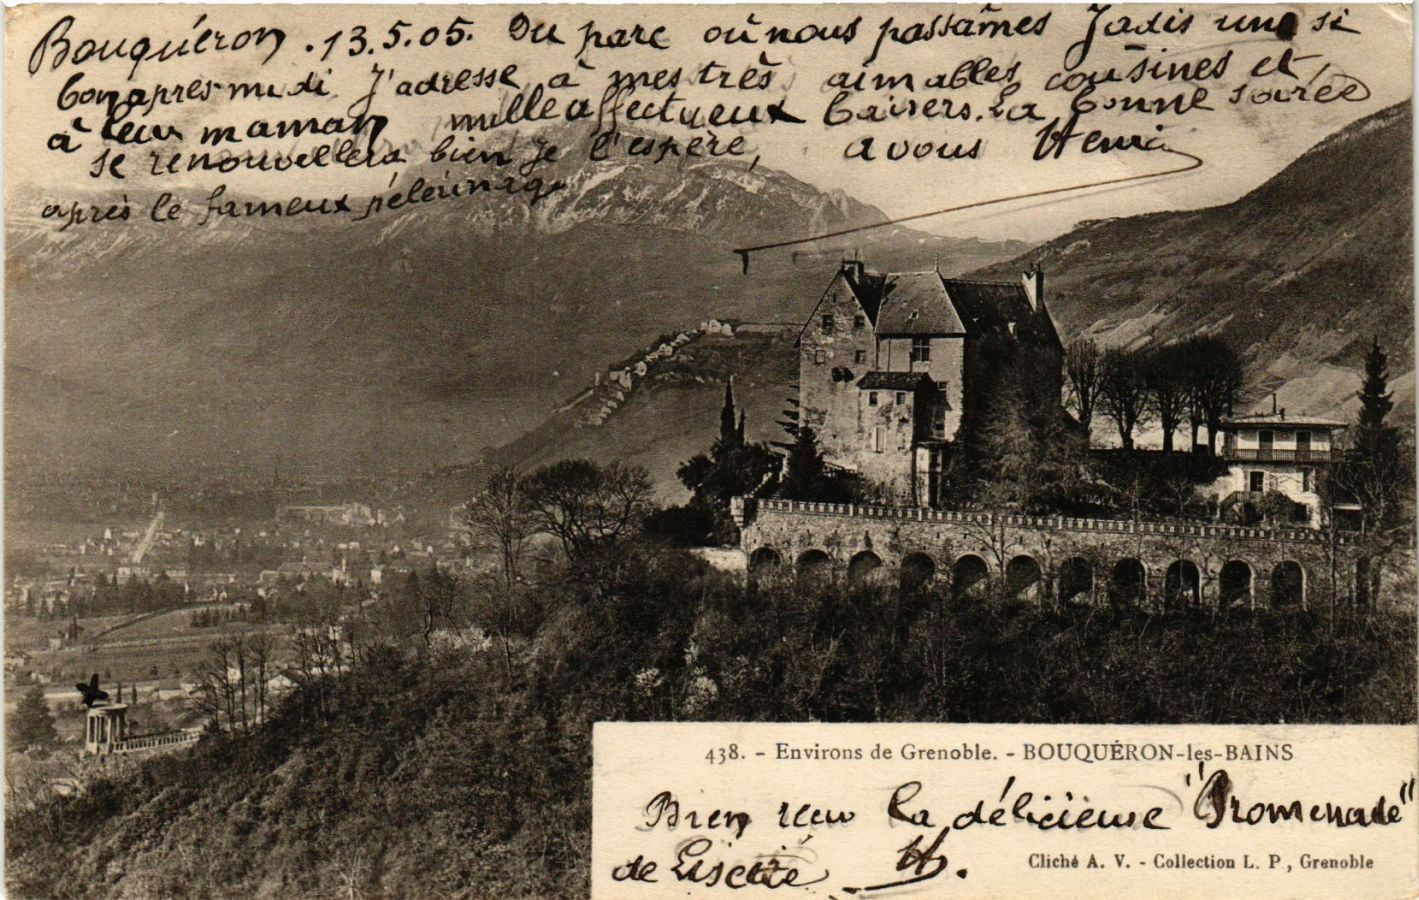 Bouquéron . 13.5.05. Du parc où nous passâmes Jadis une si
bon apres midi J'adresse à mes très aimables cousines et,
à leur maman mille affectueux baisers. La bonne soirée
se renouvellera bien je l'espère, a vous Henri
après le fameux pélerinage
438. - Environs de Grenoble. - BOUQUÉRON-les-BAINS
Bien reçu la délicieuse "Promenade"
de Lisette H.
Cliché A. V. - Collection L. P., Grenoble